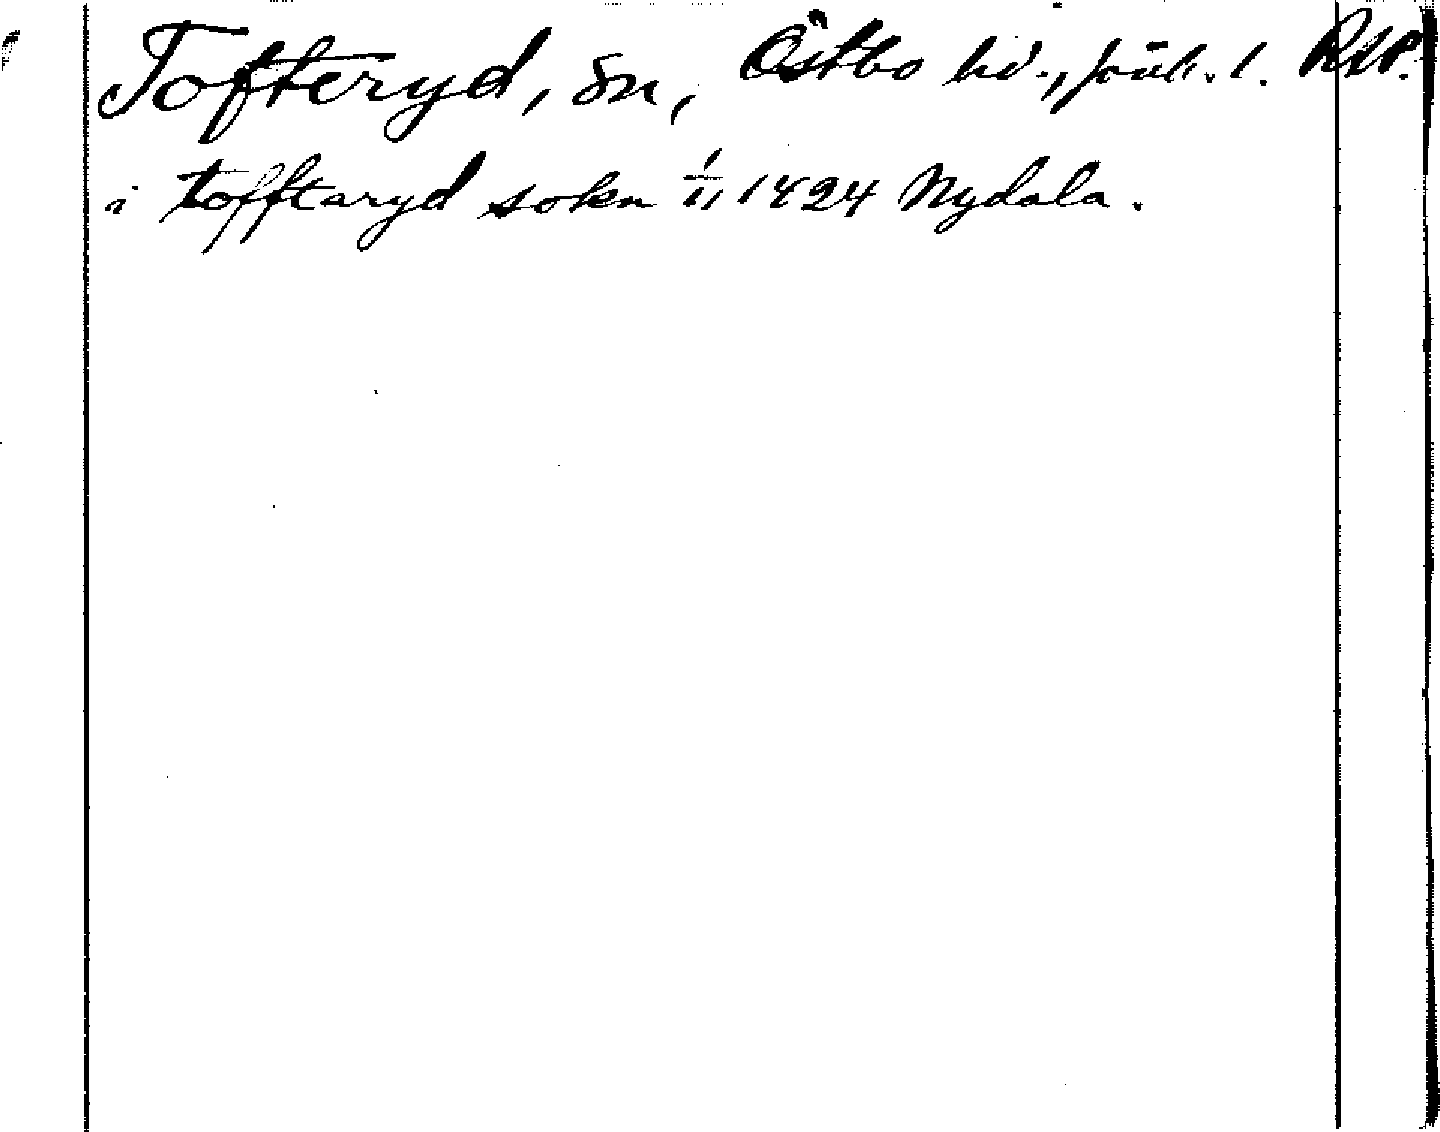 Tofteryd, sn, Östbo hd., Jönk. l. RAP.
i tofftaryd sokn 1/11 1424 Nydala.